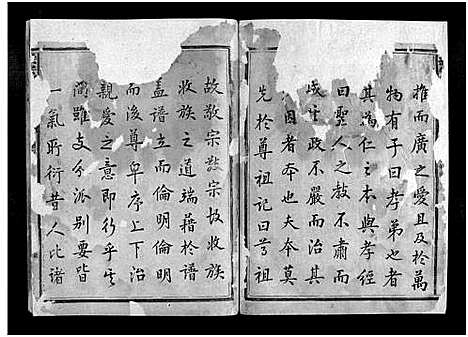 推而廣之愛且及於萬
物有子曰孝弟也者
其為仁之本與孝經
曰聖人之教不肅而
成其政不嚴而治其
因者本也夫本莫
先於尊祖記曰尊祖
故敬宗敬宗故收族
收族之道端藉於譜
蓋譜立而倫明倫明
而後尊卑序上下治
親愛之意即行乎其
間雖支分派別要皆
一氣所衍昔人比諸